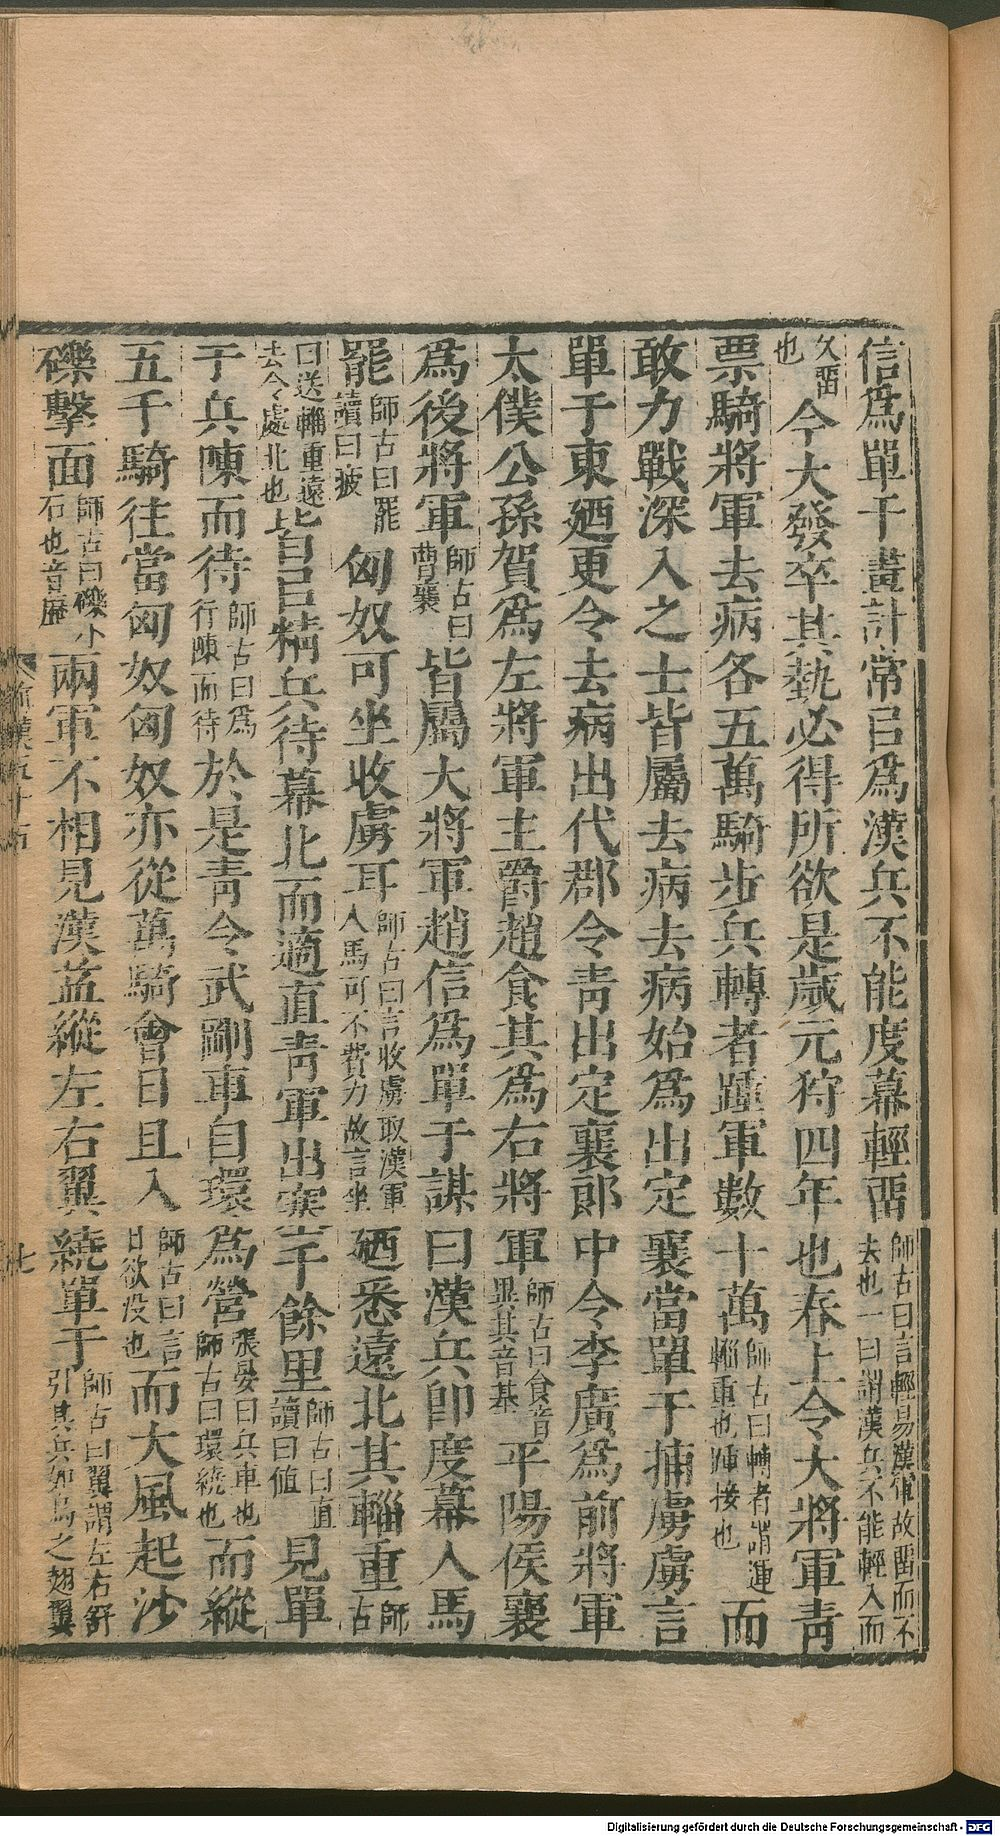 信爲單于畫計常㠯爲漢兵不能度幕輕畱師古曰言輕易漢軍故畱而不去也一曰謂漢兵不能輕入而
久畱也今大發卒其埶必得所欲是歲元狩四年也春上令大將軍青
票騎將軍去病各五萬騎步兵轉者踵軍數十萬師古曰轉者謂運輜重也踵接也而
敢力戰深入之士皆屬去病去病始爲出定襄當單于捕虜虜言
單于東廼更令去病出代郡令青出定襄郎中令李廣爲前將軍
太僕公孫賀爲左將軍主爵趙食其爲右將軍師古曰食音異其音基平陽侯襄
爲後將軍師古曰曹襄皆屬大將軍趙信爲單于謀曰漢兵卽度幕人馬
罷師古曰罷讀曰疲匈奴可坐收虜耳師古曰言收虜取漢軍人馬可不費力故言坐廼悉遠北其輜重師古
曰送輜重遠去令處北也皆㠯精兵待幕北而適直青軍出塞千餘里師古曰直讀曰值見單
于兵陳而待師古曰爲行陳而待於是青令武剛車自環爲營張晏曰兵車也師古曰環繞也而縱
五千騎往當匈奴匈奴亦從萬騎會日且入師古曰言日欲没也而大風起沙
礫擊面師古曰礫小石也音歷兩軍不相見漢益縱左右翼繞單于師古曰翼謂左右舒引其兵如鳥之翅翼
前漢五十五
七
Digitalisierung gefördert durch die Deutsche Forschungsgemeinschaft - DFG